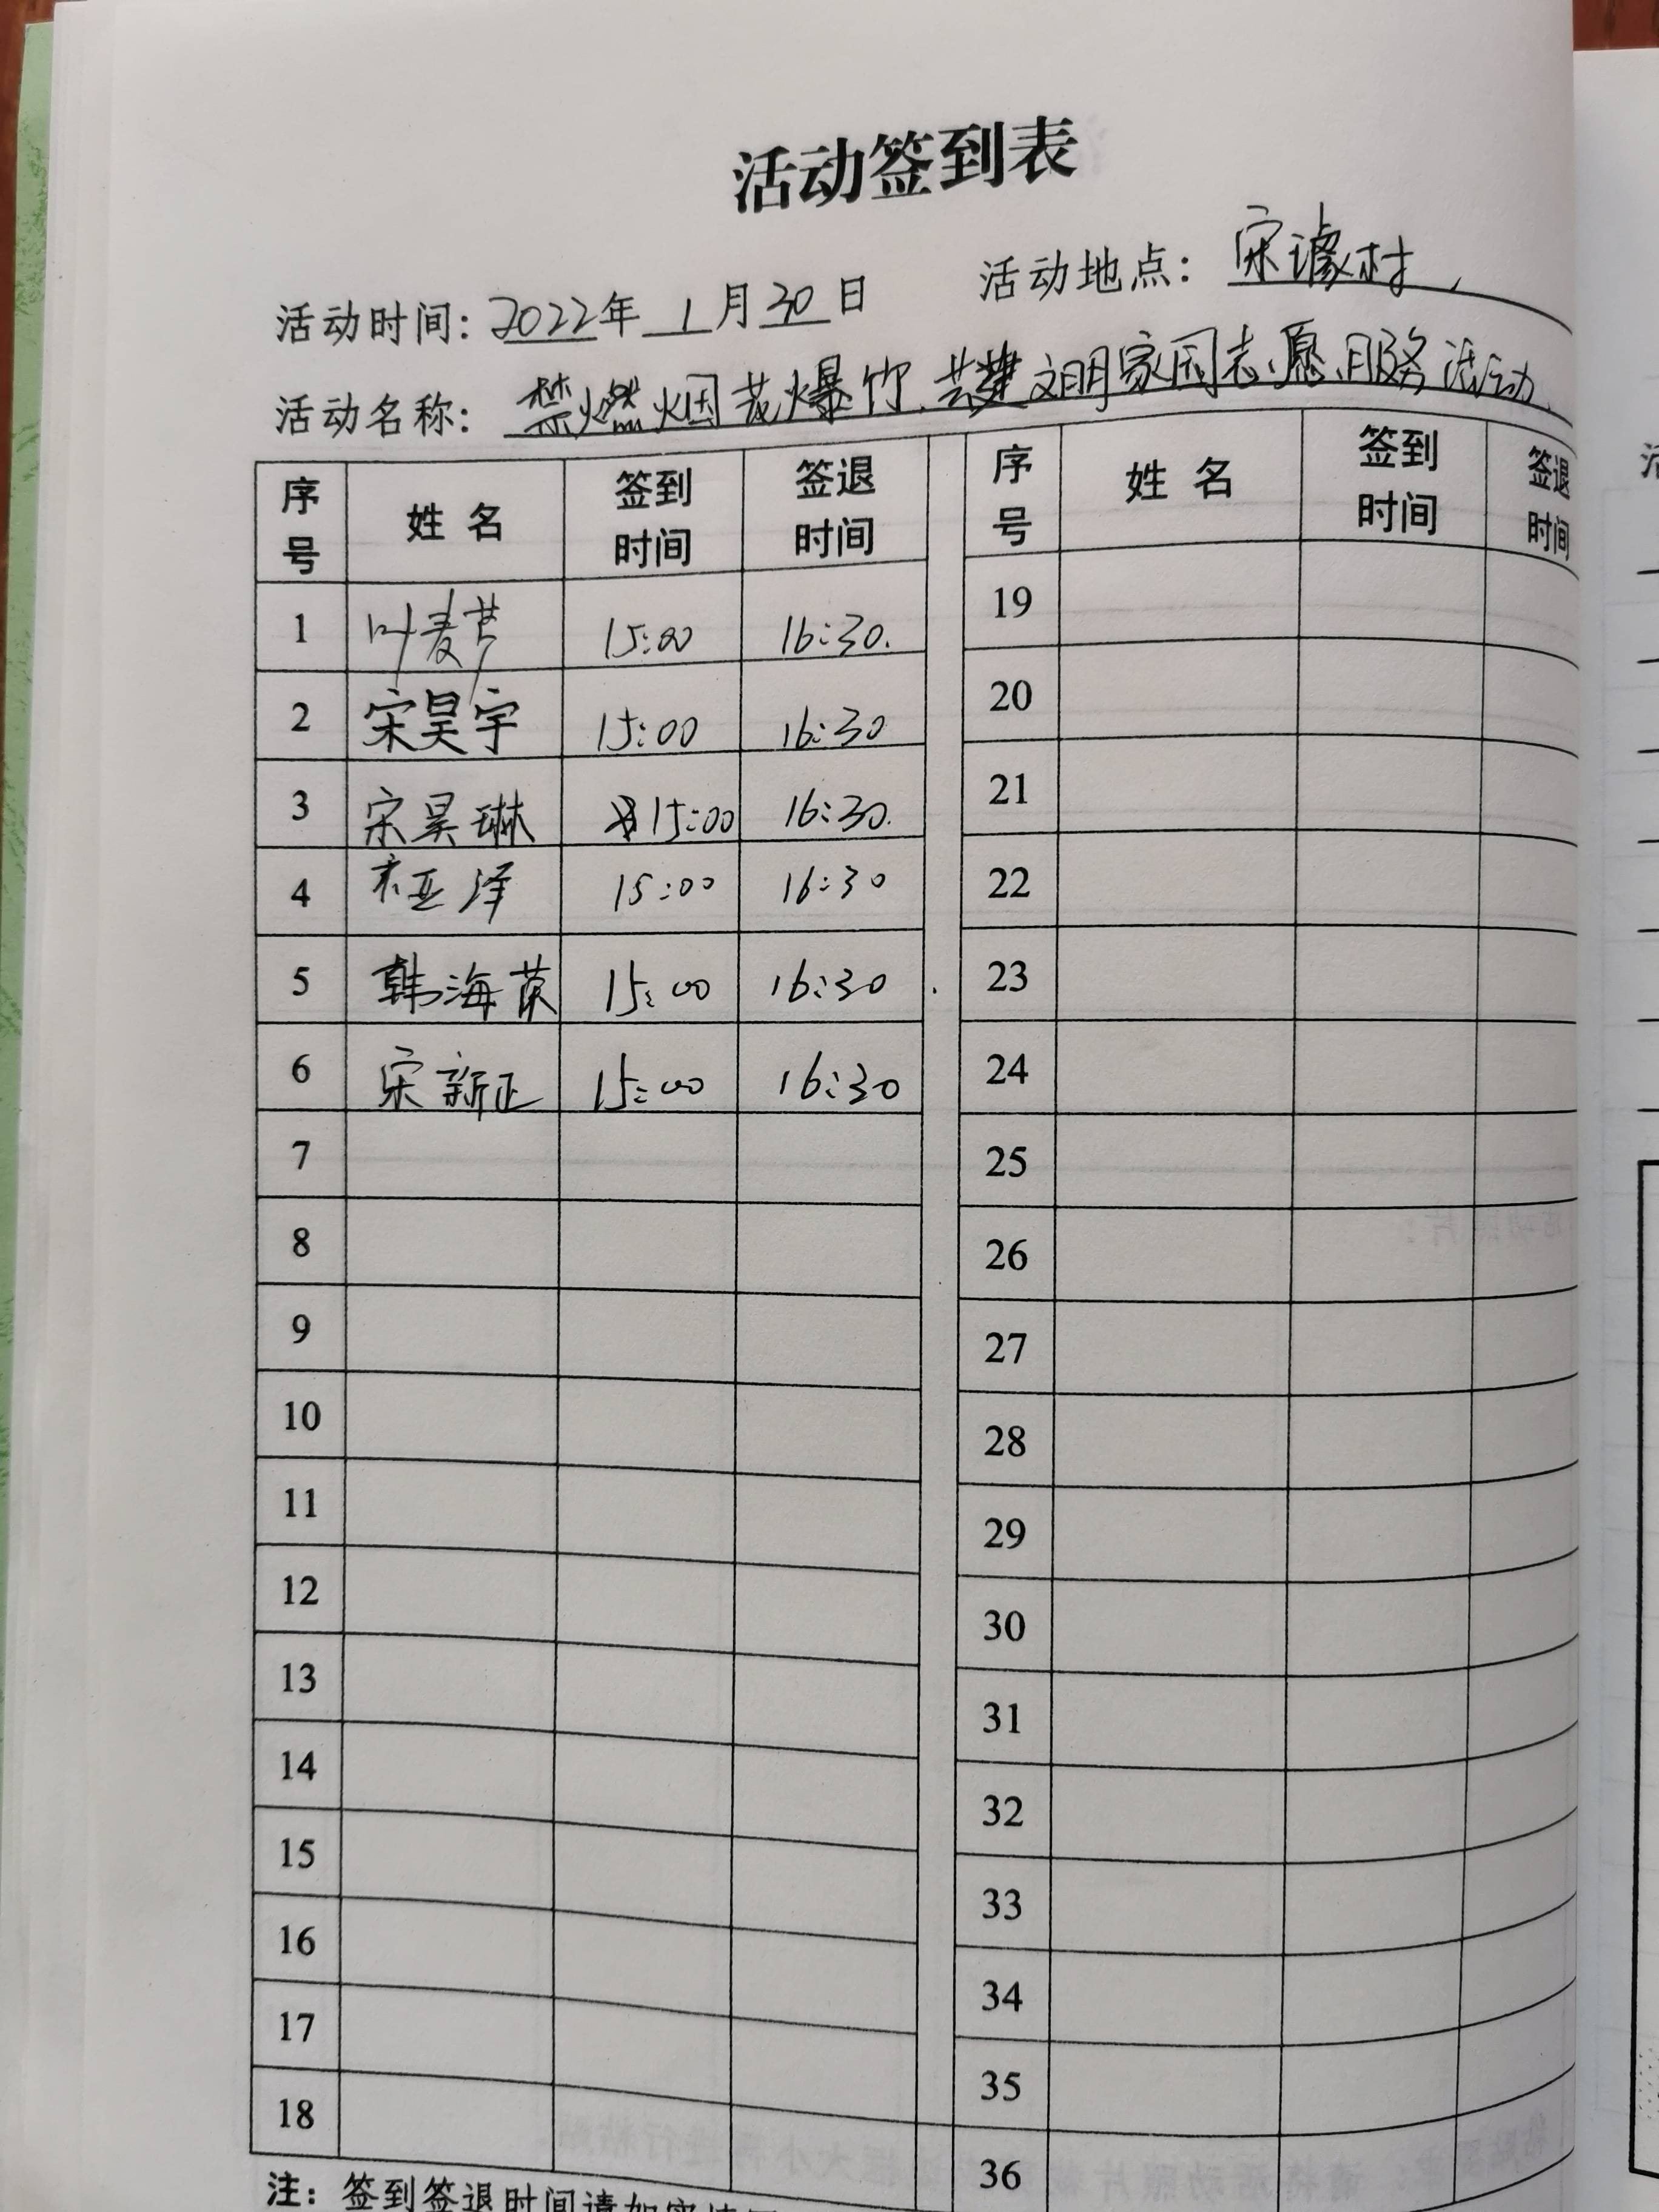 活动签到表
活动时间：2022年 1 月 30 日 活动地点：宋 村
活动名称：禁燃烟花爆竹、共建文明家园志愿服务活动
序号 姓名 签到时间 签退时间 序号 姓名 签到时间 签退时间
1 叶麦芹 15:00 16:30. 19
2 宋昊宇 15:00 16:30 20
3 宋昊琳 15:00 16:30. 21
4 亚泽 15:00 16:30 22
5 韩海英 15:00 16:30 23
6 宋新正 15:00 16:30 24
7 25
8 26
9 27
10 28
11 29
12 30
13 31
14 32
15 33
16 34
17 35
18 36
注：签到签退时间请如实